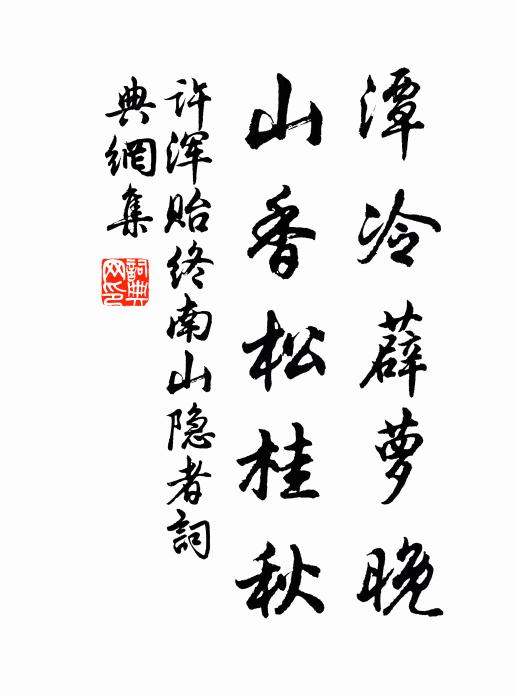 潭冷薜萝晚
山香松桂秋
许浑贻终南山隐者詞
典網集
詞典网印